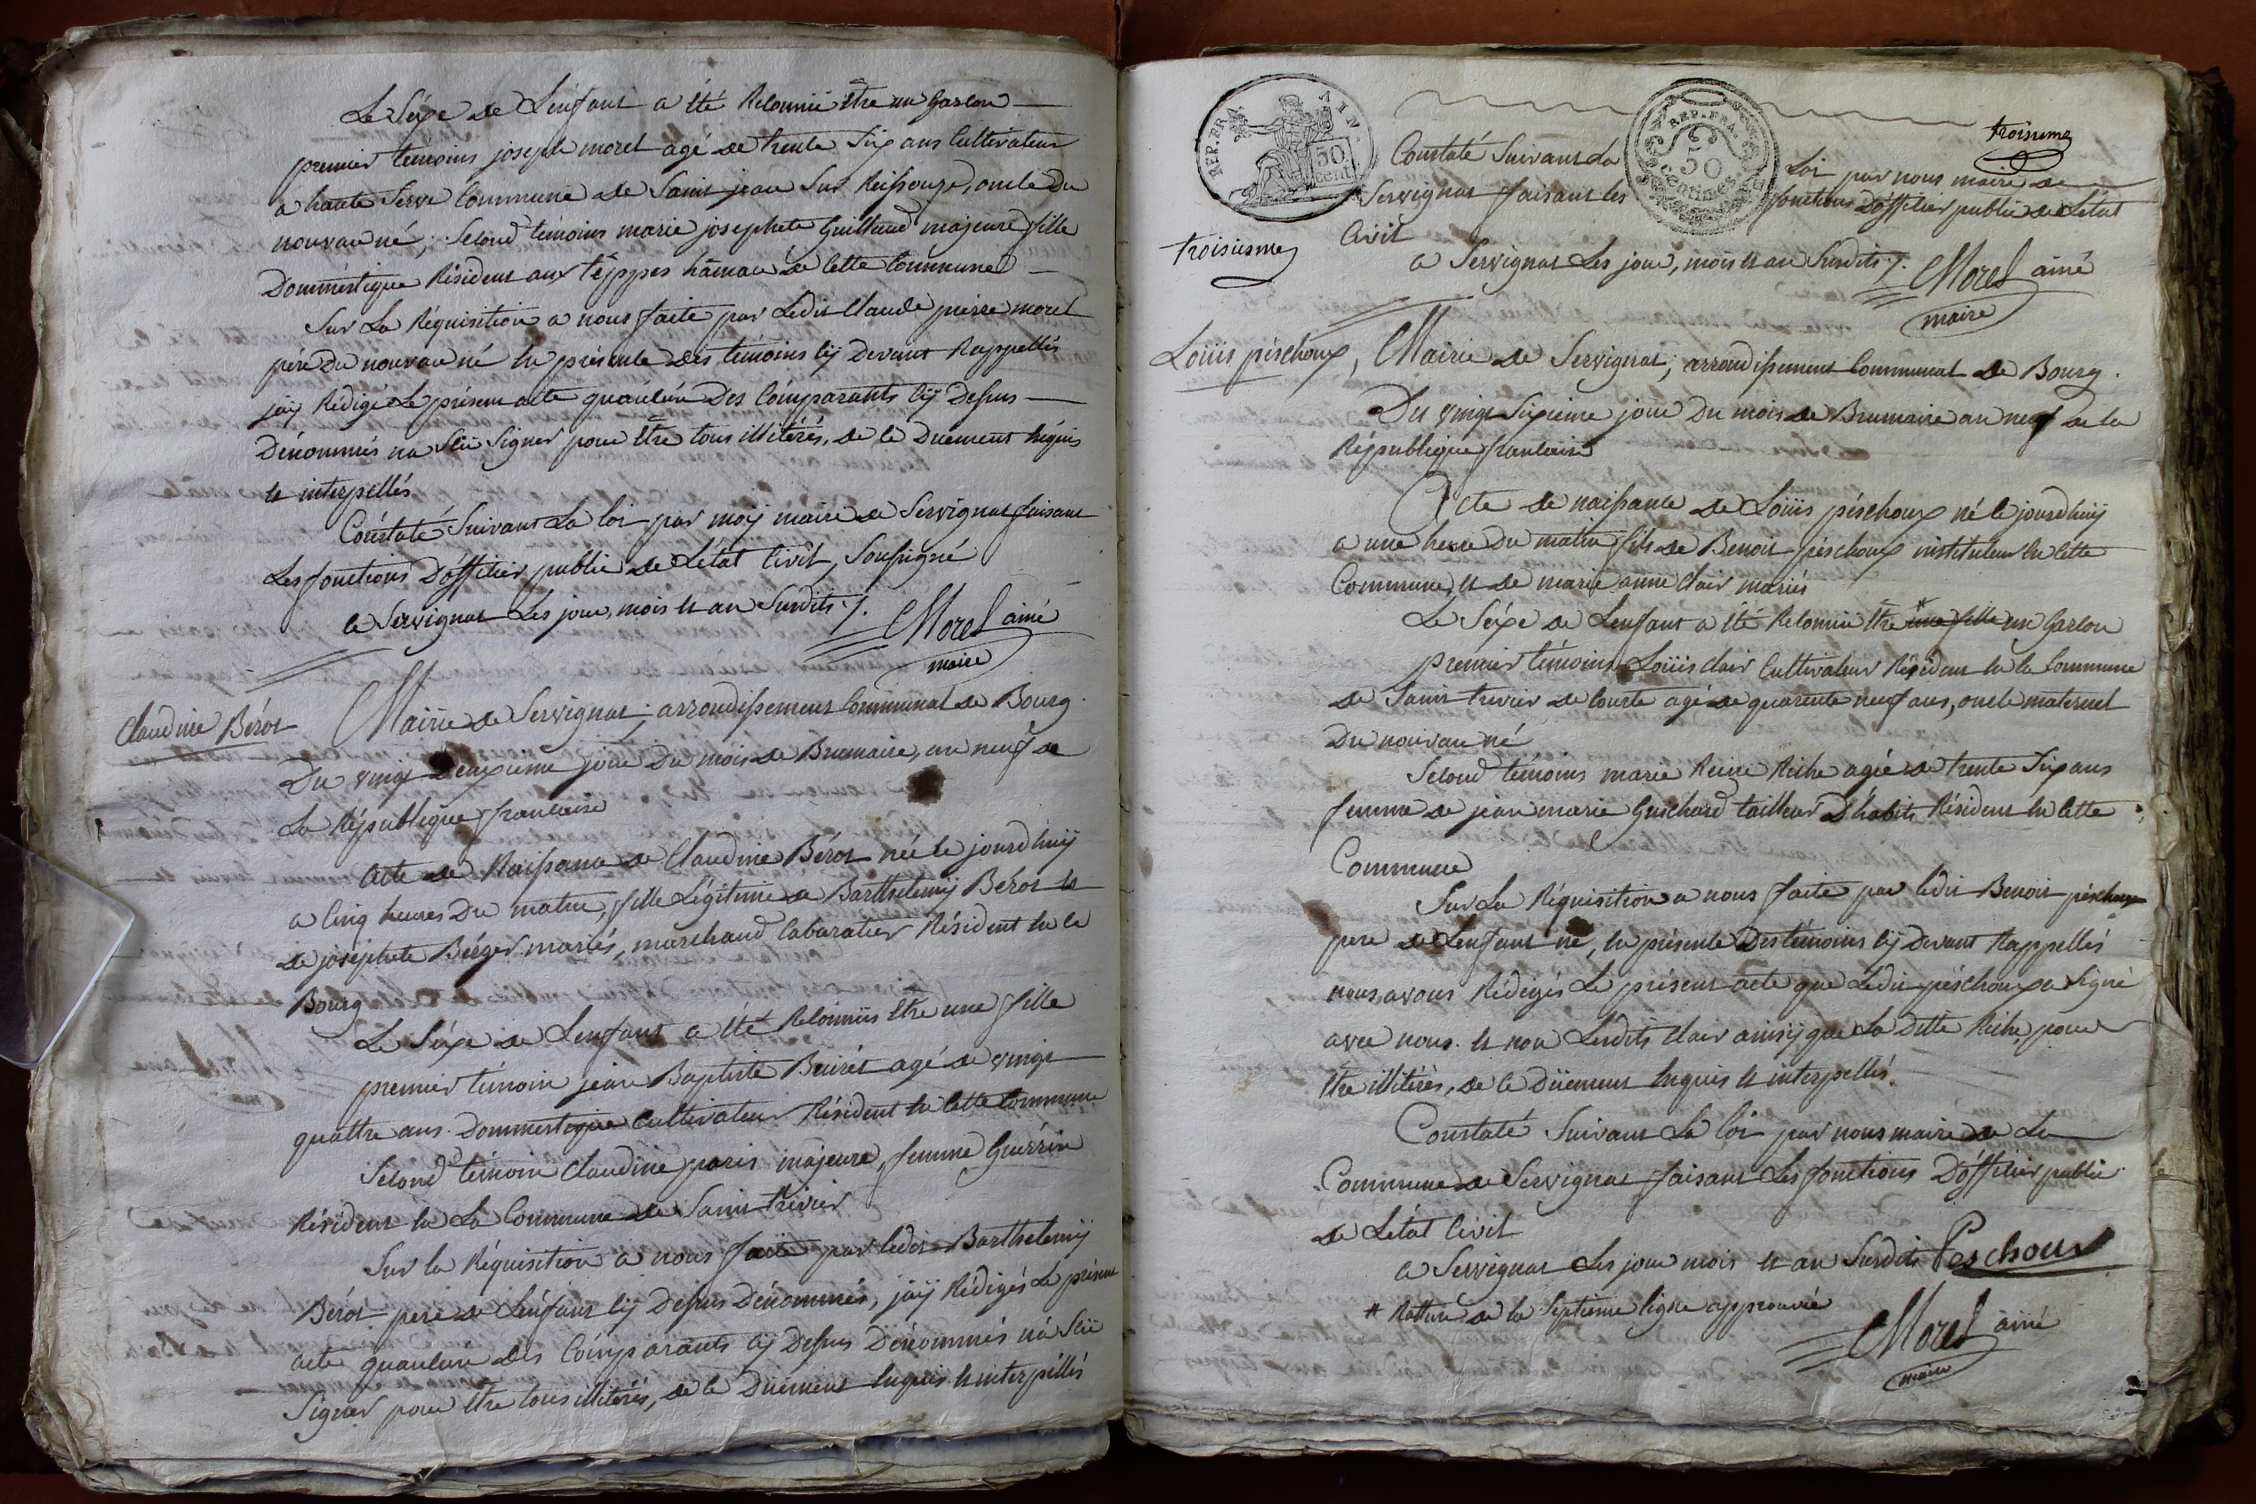 Le Séxe de Lenfant a été Reconnu être un garcon
premier témoins joseph morel agé de trente Six ans Cultivateur
a haute Serve Commune de Saint jean Sur Reissouze, oncle du
nouveau né; Second témoins marie josephete Guillaud majeure fille
Doméstique Résident aux téppes hâmau de cette Commune
Sur La Réquisition a nous faite par Ledit Claude pierre morel
pére du nouveau né En présence des témoins cy Devant Rappellés
jay Rédigé Le présent acte quaucun Des Comparants cÿ Dessus
Dénommés na Sçu Signer pour être tous illitérés, de ce Duement Enquis
et interpellés
Constaté Suivant La loi par moy maire de Servignat faisant
Les fonctions Dofficier public de Létat Civil, Soussigné
a Servignat Les jour, mois et an Susdits ./. Morel ainé
maire
Claudine Bérot
Mairie de Servignat; arrondissement Communal de Bourg.
Du vingt deuxieme jour Du mois de Brumaire, an neuf de
La République francaise
Acte de Naissance de Claudine Bérot née le jourdhuÿ
a cinq heures Du matin, fille Légitime de Barthelemÿ Bérot et
de joséphete Bérger mariés, marchand Cabaratier Résident en la
Bourg
Le Séxe de Lenfant a été Reconnüs être une fille
premier témoin jean Baptiste Beurét agé de vingt
quattre ans. Dommestique Cultivateur Résident En Cette Commune
Second témoin Claudine paris majeure, femme Guérrin
Résident En La Commune de Saint trivier
Sur la Réquisition a nous faitte par ledit Barthelemÿ
Bérot pere de Lenfant cÿ Dessus Dénommés, jaÿ Rédigés Le présent
acte quaucun des Comparants cÿ Dessus Dénommés na Sçü
Signer pour être tous illitérés, de ce Düement Enquis et interpéllés
REP. FRA. AIN. 50 cent
REP. FRA. 50 centimes
troisieme
troisiesme
Constaté Suivant La Loi par nous maire de
Servignat faisant les fonctions Dofficier public de Létat
Civil
a Servignat Les jour, mois et an Susdits ./. Morel ainé
maire
Loüis péschoux,
Mairie de Servignat; arrondissement Communal de Bourg.
Du vingt Sixieme jour Du mois de Brumaire an neuf de la
République francaise
Acte de naissance de Loüis péschoux né le jourdhuÿ
a une heure Du matin fils de Benoit péschoux instituteur En cette
Commune, et de marie anne clair mariés
Le Séxe de Lenfant a été Reconnu être * une fille un Garcon
premier témoins Loüis clair Cultivateur Résident En la Commune
de Saint trivier de Courte agé de quarente neuf ans, oncle maternel
Du nouveau né
Second témoins marie Reine Riche agée de trente Six ans
femme de jean marie Guichard tailleur D'habits Résident En cette
Commune
Sur La Réquisition a nous faite par ledit Benoit péschoux
pere de Lenfant né, En présence Des témoins cÿ Devant Rappellés
nous avons Rédigés Le présent acte que Ledit péschoux a Signé
avec nous. et non Lesdits clair ainsÿ que La ditte Riche, pour
être illitérés, de ce Düement Enquis et interpellés.
Constaté Suivant La Loi par nous maire de La
Commune de Servignat faisant Les fonctions Dofficier public
de Létat Civil
a Servignat Les jour mois et an Susdits Peschoux
* Rature de la Septieme ligne approuvée
Morel ainé
maire